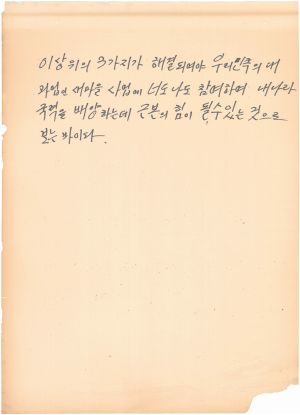 이상 위의 3가지가 해결되여야 우리민족의 대
과업인 새마을 사업에 너도 나도 참여하며 내나라
국력을 배양하는데 근본의 힘이 될수있는 것으로
보는 바이다.